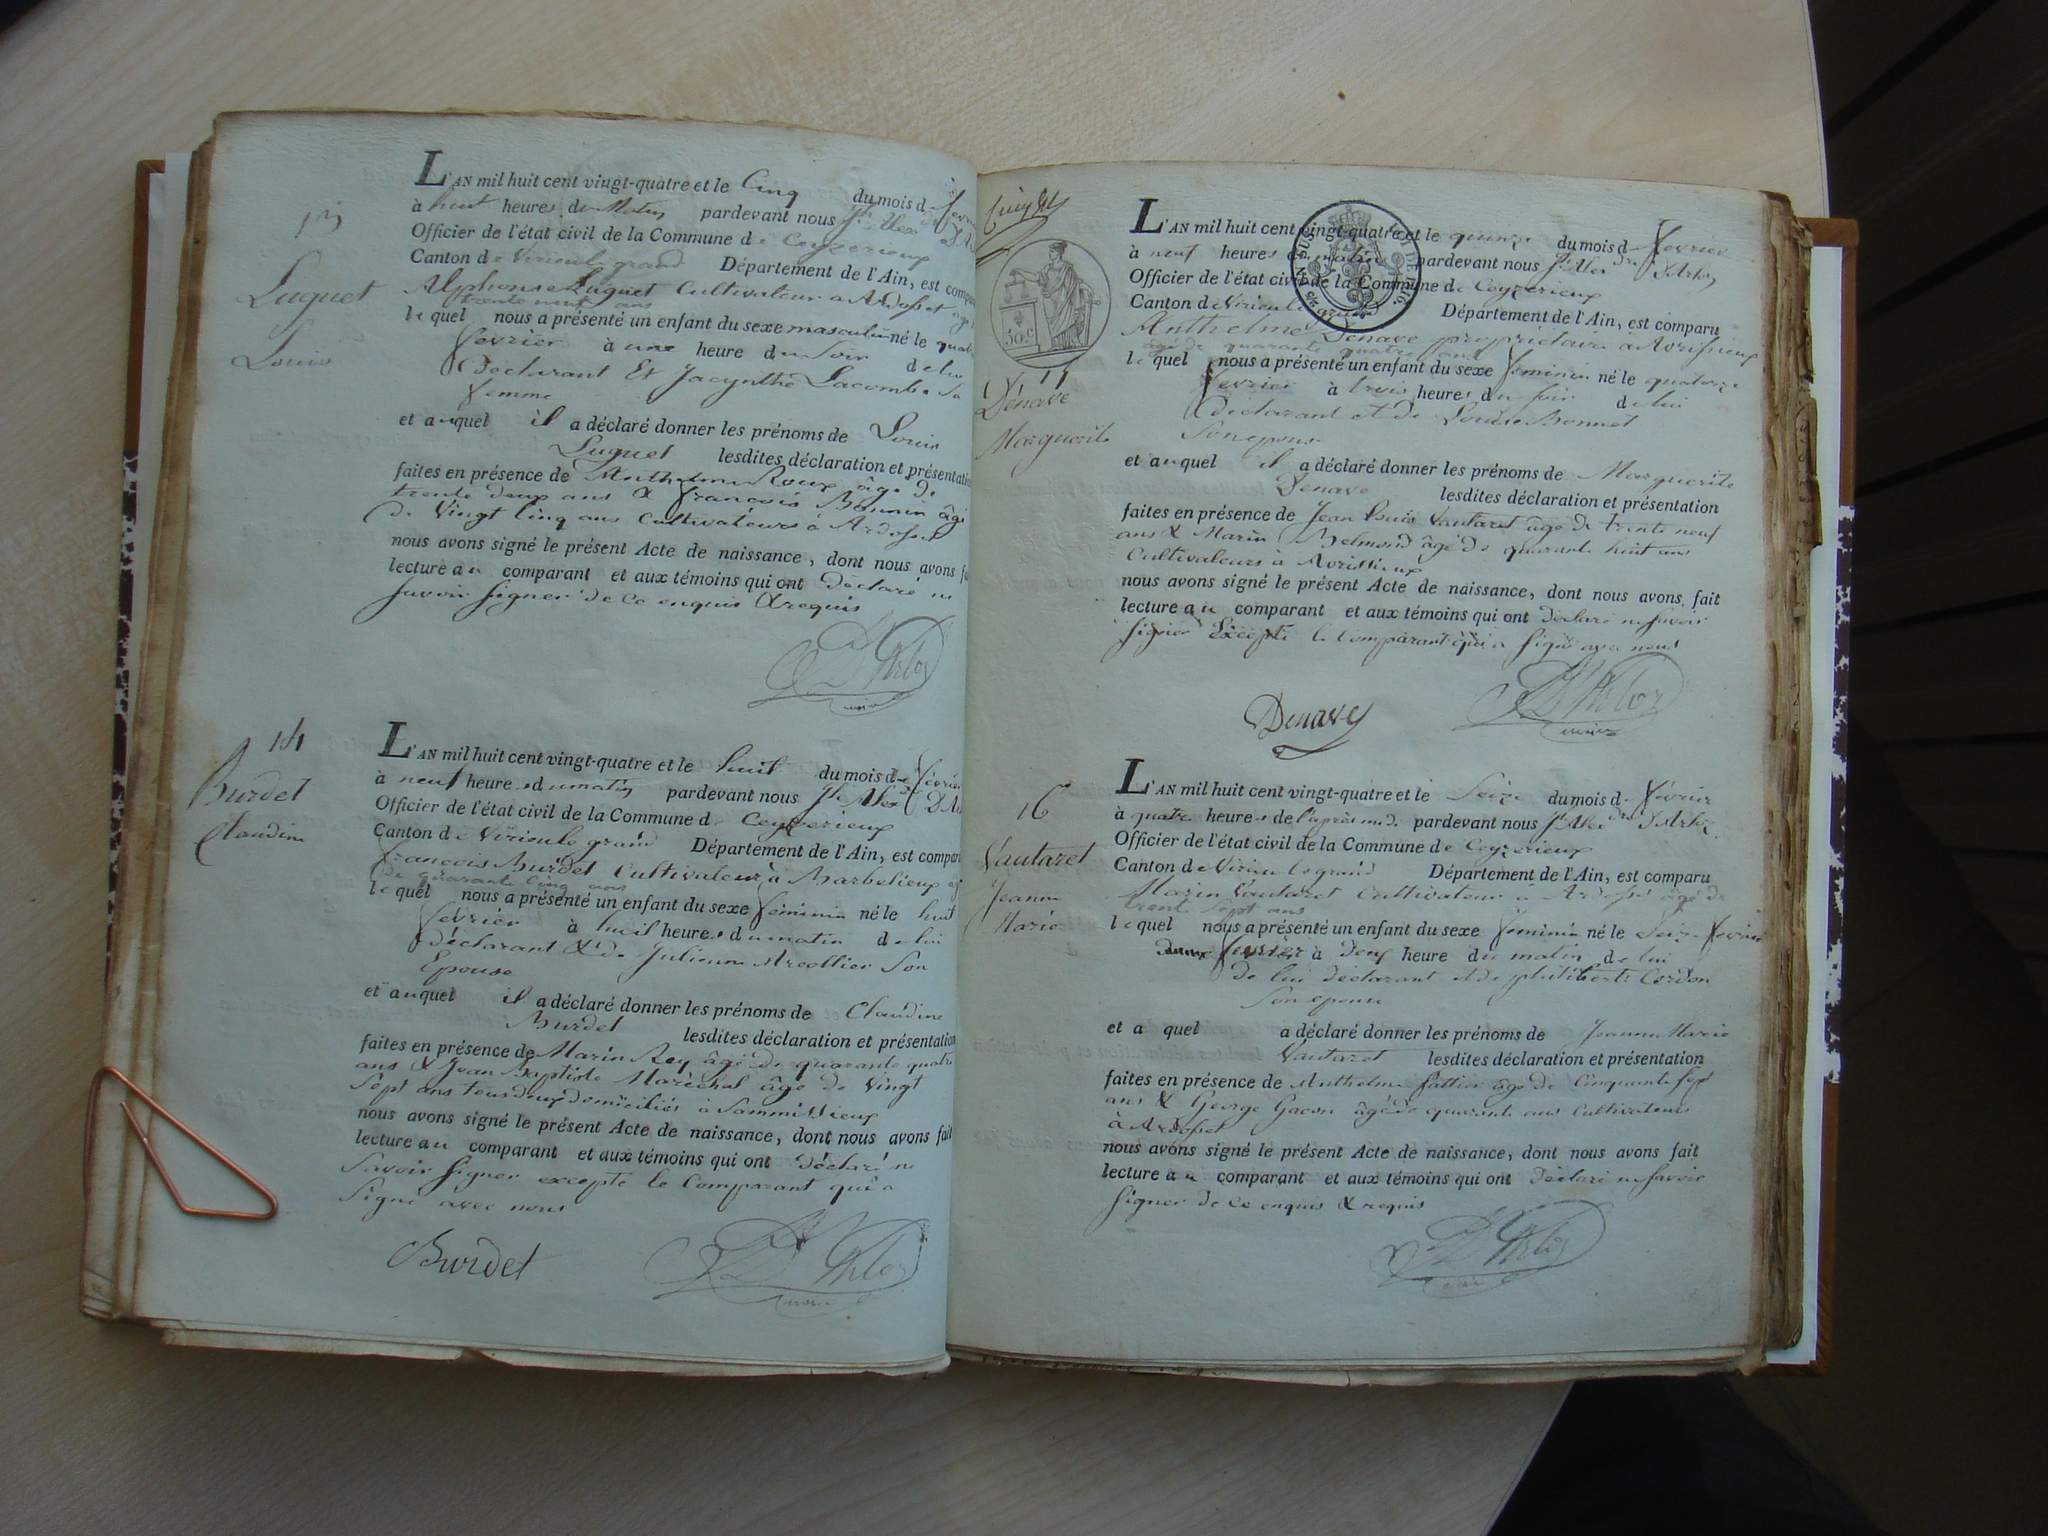 13
Luguet
Louis
L'AN mil huit cent vingt-quatre et le Cinq du mois de
à huit heures du Matin pardevant nous Jh Alex
Officier de l'état civil de la Commune de Ceyzerieux
Canton de Virieu le grand Département de l'Ain, est
Alphonse Luguet Cultivateur à Ardosset
trente neuf ans
le quel nous a présenté un enfant du sexe masculin né le
fevrier à une heure du Soir de lui
Declarant Et Jacynthe Lacombe Sa
femme
et auquel il a déclaré donner les prénoms de Louis
Luguet lesdites déclaration et
faites en présence de Anthelme Roux âgé de
trente deux ans & francois âgé
de Vingt Cinq ans Cultivateurs à Ardosset
nous avons signé le présent Acte de naissance, dont nous avons
lecture au comparant et aux témoins qui ont Déclaré ne
Savoir Signer de Ce enquis & requis
14
Burdet
Claudine
L'AN mil huit cent vingt-quatre et le huit du mois de
à neuf heures du matin pardevant nous Jh Alex
Officier de l'état civil de la Commune de Ceyzerieux
Canton de Virieu le grand Département de l'Ain, est
francois Burdet Cultivateur à Barbelieux
de quarante Cinq ans
le quel nous a présenté un enfant du sexe féminin né le huit
fevrier à huit heures du matin de lui
déclarant & de Julienne Son
Epouse
et auquel il a déclaré donner les prénoms de Claudine
Burdet lesdites déclaration et présentation
faites en présence de Marin Rey âgé de quarante quatre
ans & Jean Baptiste Maréchal âgé de Vingt
Sept ans tous deux domiciliés à Sammissieux
nous avons signé le présent Acte de naissance, dont nous avons fait
lecture au comparant et aux témoins qui ont Déclaré ne
Savoir Signer excepté le Comparant qui a
Signé avec nous
Burdet
50c
Denave
Marguerite
L'AN mil huit cent vingt-quatre et le quinze du mois de fevrier
à neuf heures du matin pardevant nous Jh Alexdre D'Arloz
Officier de l'état civil de la Commune de Ceyzerieux
Canton de Virieu le grand Département de l'Ain, est comparu
Anthelme Denave propriétaire à Avrissieux
âgé de quarante quatre ans
le quel nous a présenté un enfant du sexe féminin né le quatorze
fevrier à trois heures du Soir de lui
déclarant et de Louise Bonnet
Son epouse
et auquel il a déclaré donner les prénoms de Marguerite
Denave lesdites déclaration et présentation
faites en présence de Jean Louis Vautaret âgé de trente neuf
ans & Marin Belmond âgé de quarante huit ans
Cultivateurs à Avrissieux
nous avons signé le présent Acte de naissance, dont nous avons fait
lecture au comparant et aux témoins qui ont déclaré ne Savoir
Signer Excepté le Comparant qui a Signé avec nous
Denave
D'Arloz
16
Vautaret
Jeanne
Marie
L'AN mil huit cent vingt-quatre et le Seize du mois de fevrier
à quatre heures de l'après midi pardevant nous Jh Alexdre D'Arloz
Officier de l'état civil de la Commune de Ceyzerieux
Canton de Virieu le grand Département de l'Ain, est comparu
Marin Vautaret Cultivateur à Ardosset âgé de
trente Sept ans
le quel nous a présenté un enfant du sexe féminin né le Seize fevrier
fevrier à Deux heure du matin de lui
de lui déclarant et de philiberte Cordon
Son epouse
et a quel a déclaré donner les prénoms de Jeanne Marie
Vautaret lesdites déclaration et présentation
faites en présence de Anthelme âgé de Cinquante Sept
ans & George Gacon âgé de quarante ans Cultivateurs
à Ardosset
nous avons signé le présent Acte de naissance, dont nous avons fait
lecture au comparant et aux témoins qui ont Déclaré ne Savoir
Signer de Ce enquis & requis
D'Arloz